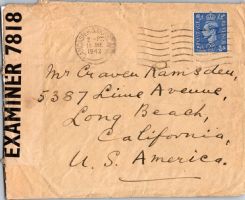 EXAMINER 7818
1942
Mr Craven Ramsden,
5387 Lime Avenue,
Long Beach,
California,
U. S. America.